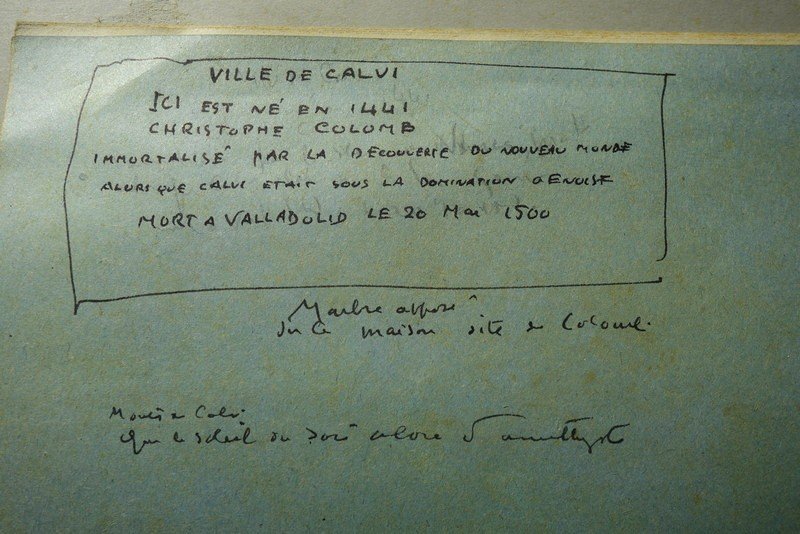 VILLE DE CALVI
ICI EST NÉ EN 1441
CHRISTOPHE COLOMB
IMMORTALISÉ PAR LA DECOUVERTE DU NOUVEAU MONDE
ALORS QUE CALVI ETAIT SOUS LA DOMINATION GENOISE
MORT A VALLADOLID LE 20 Mai 1500
Marbre apposé
sur la maison dite de Colomb.
Calvi
que le soleil du soir d'améthyste